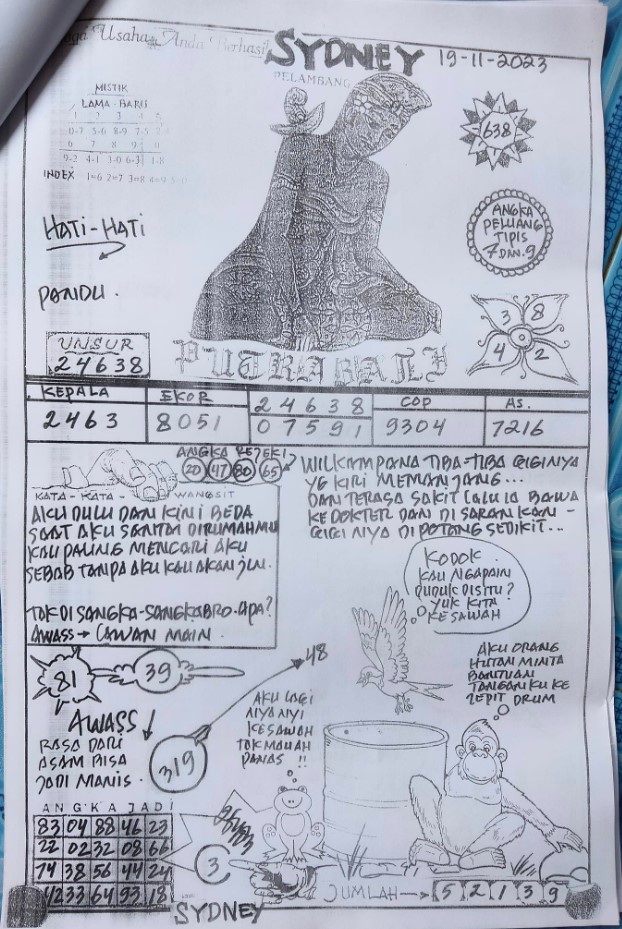 Usaha Anda Berhasil
SYDNEY 19-11-2023
PELAMBANG
MISTIK
LAMA - BARU
1 2 3 4 5
0-7 5-6 8-9 7-5
6 7 8 9
9-2 4-1 3-0 6-3 1-8
INDEX 1=6 2=7 3=8 4=9
638
HATI-HATI
ANGKA
PELUANG
TIPIS
7 DAN 9
PANDU.
3 8
4 2
UNSUR
24638
PUTRA BALI
KEPALA EKOR 24638 COP AS.
2463 8051 07591 9304 7216
ANGKA REJEKI
20 47 80 65
KATA - KATA - WANGSIT
AKU DULU DAN KINI BEDA
SAAT AKU SANTAI DIRUMAHMU
KAU PALING MENCARI AKU
SEBAB TANPA AKU KAU AKAN
TOK DI SANGKA-SANGKA BRO. APA?
AWASS → LAWAN MAIN.
WILKAMPANA TIBA-TIBA GIGINYA
YG KIRI MEMANJANG...
DAN TERASA SAKIT LALU IA BAWA
KE DOKTER DAN DI SARAN KAN -
GIGI NYA DI POTONG SEDIKIT...
KODOK.
KAU NGAPAIN
DUDUK DISITU?
YUK KITA
KE SAWAH
AKU ORANG
HUTAN MINTA
BANTUAN
TANGAN KU KE
ZEPIT DRUM
81 39 48
AWASS
RASA DARI
ASAM BISA
JADI MANIS.
319
AKU LAGI
NYANYI
KESAWAH
TOK MAUAH
PANAS !!
ANGKA JADI
83 04 88 46 23
22 02 32 08 66
74 38 56 44 24
42 33 64 93 18
3
JUMLAH → 5 2 1 3 9
SYDNEY